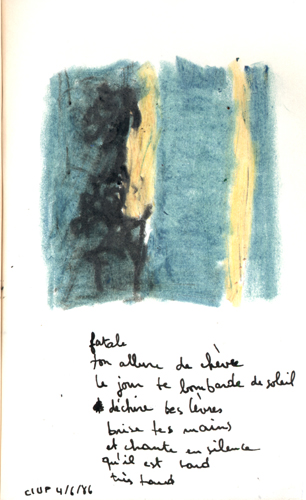 fatale
ton allure de chèvre
le jour te bombarde de soleil
déchire tes lèvres
brise tes mains
et chante en silence
qu'il est tard
très tard
CIUP 4/6/86